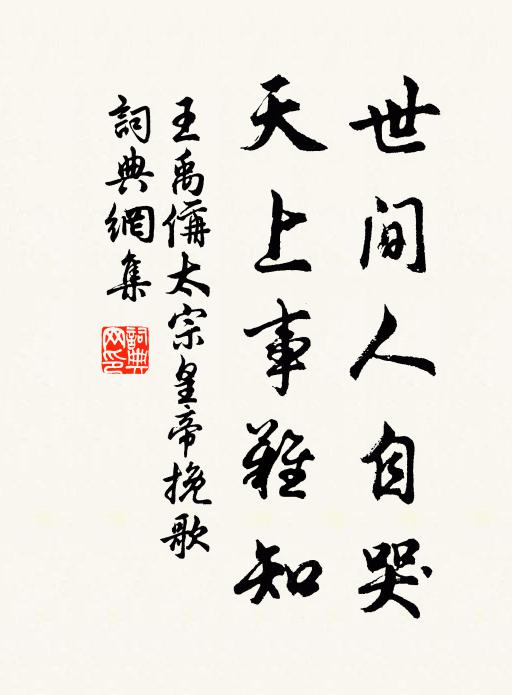 世間人自哭
天上事難知
王禹偁太宗皇帝挽歌
詞典網集
詞典網印